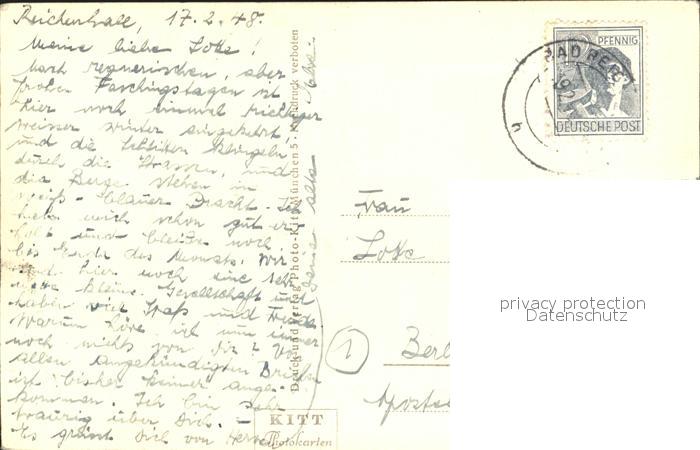 Reichenhall, 17.2.48.
Meine liebe Lotte!
Nach regnerischen, aber
frohen Faschingstagen ist
hier noch einmal richtiger
weisser Winter eingekehrt
und die Schlitten klingeln
durch die Strassen, und
die Berge stehen in
weiß-blauer Pracht. Ich
habe mich schon gut er-
holt und bleibe noch
bis Ende des Monats. Wir
sind hier noch eine sehr
nette kleine Gesellschaft und
haben viel Spaß und Freude
Warum höre ich nun immer
noch nichts von dir? Von
allen angekündigten Briefen
ist bisher keiner ange-
kommen. Ich bin sehr
traurig über Dich. –
Es grüßt Dich von Herzen
alles
Druck und Verlag Photo-Kitt München 5 · Nachdruck verboten
KITT
Photokarten
PFENNIG
DEUTSCHE POST
BAD REIC
Frau
Lotte
1 Berl
privacy protection
Datenschutz